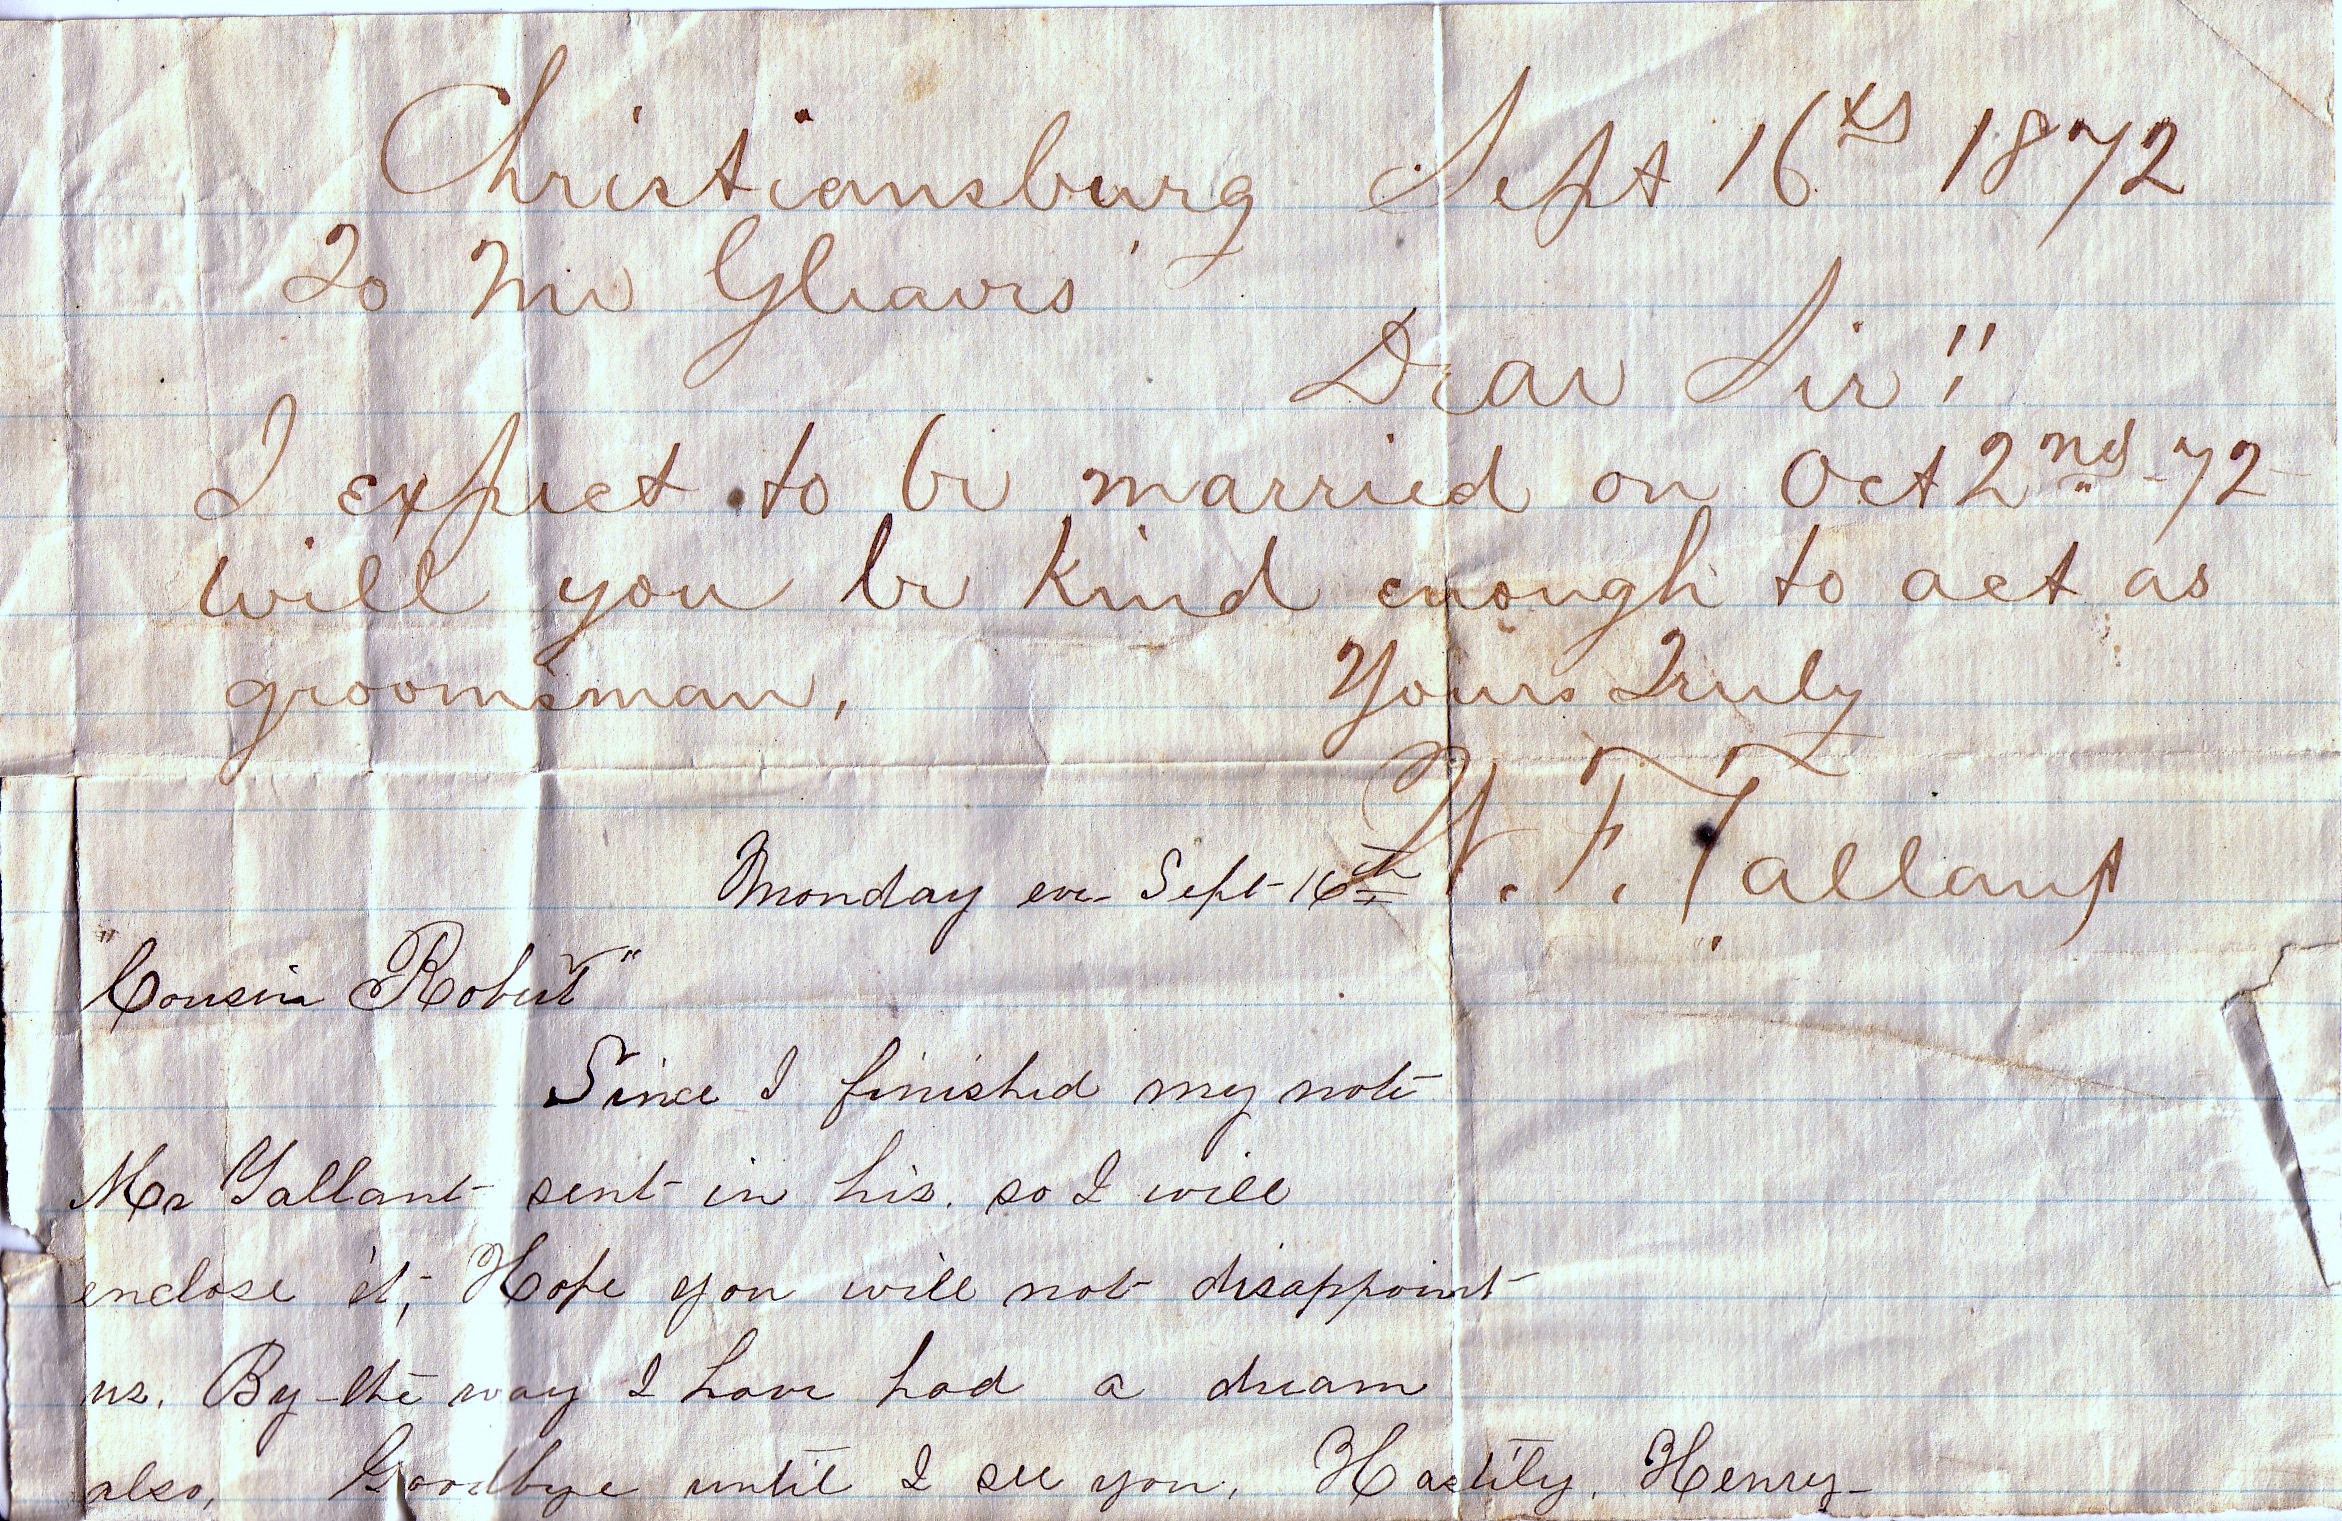 Christiansburg Sept 16th 1872
To Mr Gleaves
Dear Sir!!
I expect to be married on Oct 2nd -72
will you be kind enough to act as
groomsman, Yours Truly
W. T. Tallant
Monday eve- Sept 16th
"Cousin Robert"
Since I finished my note
Mr Tallant sent in his. so I will
enclose it, Hope you will not disappoint
us. By the way I have had a dream
also, Goodbye until I see you, Hastily, Henry-